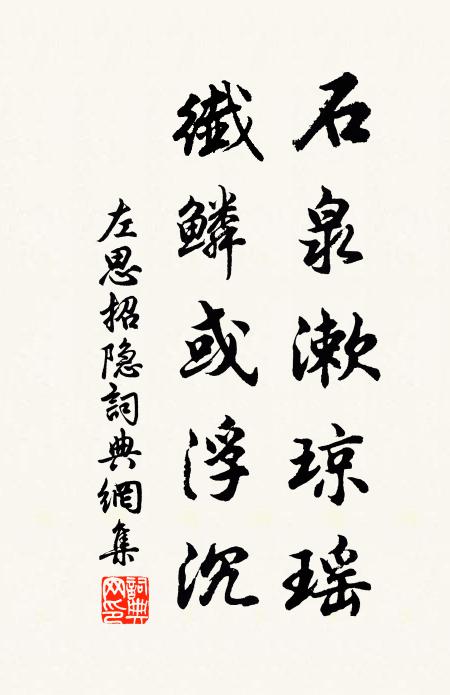 石泉漱琼瑶
纖鳞或浮沉
左思招隐詞典網集
詞典网印